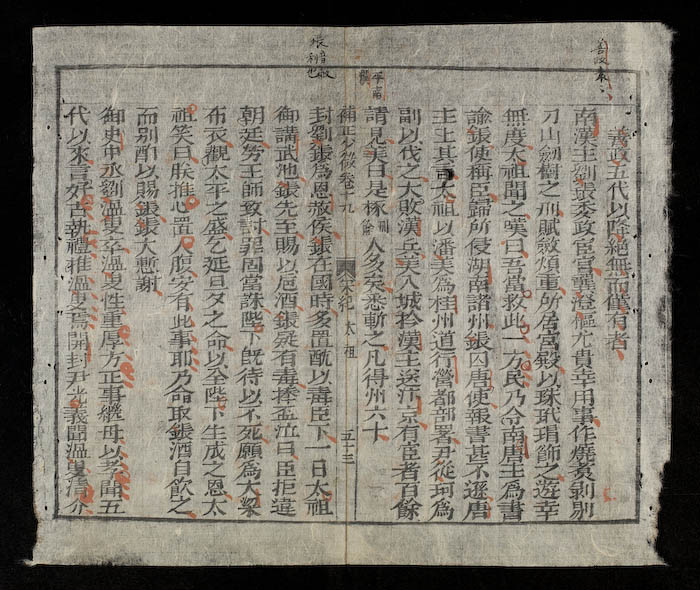 善政五代以降絶無而僅有者
南漢主劉鋹委政宦官龔澄樞尤貴幸用事作燒煮剥剔
刀山劒樹之刑賦斂煩重所居宮殿以珠玳瑁飾之遊幸
無度太祖聞之嘆曰吾當救此一方民乃令南唐主爲書
諭鋹使稱臣歸所侵湖南諸州鋹囚唐使報書甚不遜唐
主上其書太祖以潘美爲桂州道行營都部署尹從珂爲
副以伐之大敗漢兵矣入城擒漢主送汴京有宦者百餘
請見美曰是椓人多矣悉斬之凡得州六十
補正少微卷二九
宋紀
太祖
五十三
封劉鋹爲恩赦侯鋹在國時多置酖以毒臣下一日太祖
御講武池鋹先至賜以巵酒鋹疑有毒捧盃泣曰臣拒違
朝廷勞王師致討罪固當誅陛下旣待以不死願爲大梁
布衣觀太平之盛乞延旦夕之命以全陛下生成之恩太
祖笑曰朕推心置人腹安有此事耶乃命取鋹酒自飲之
而別酌以賜鋹鋹大慙謝
御史中丞劉溫叟卒溫叟性重厚方正事繼母以孝聞五
代以來言好古執禮推溫叟焉開封尹光義聞溫叟清介